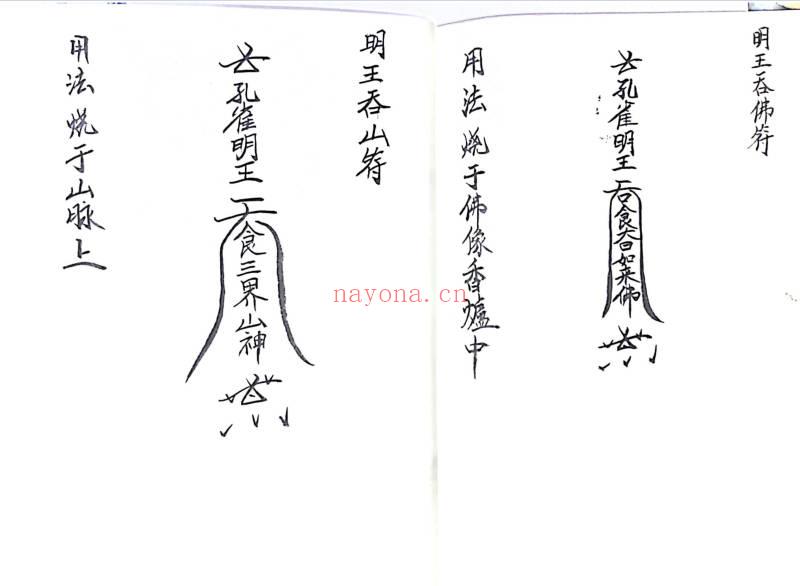 明王吞佛符
孔雀明王
吞食大日如来佛
用法烧于佛像香爐中
明王吞山符
孔雀明王
食三界山神
用法烧于山脉上
nayona.cn